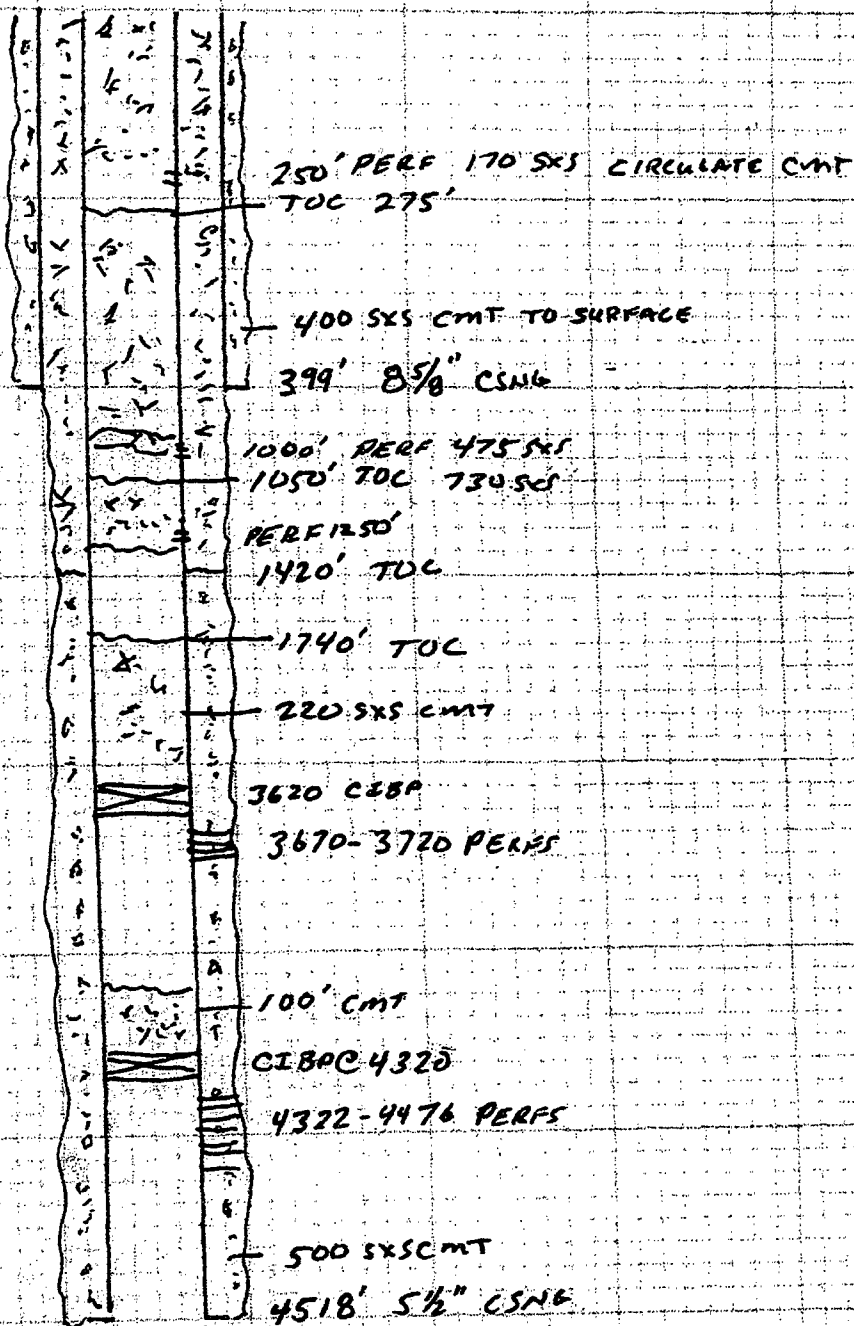 250' PERF 170 SXS CIRCULATE CMT
TOC 275'
400 SXS CMT TO SURFACE
399' 8 5/8" CSNG
1000' PERF 475 SXS
1050' TOC 730 SXS
PERF 1250'
1420' TOC
1740' TOC
220 SXS CMT
3620 CIBP
3670-3720 PERFS
100' CMT
CIBP@ 4320
4322-4476 PERFS
500 SXS CMT
4518' 5 1/2" CSNG